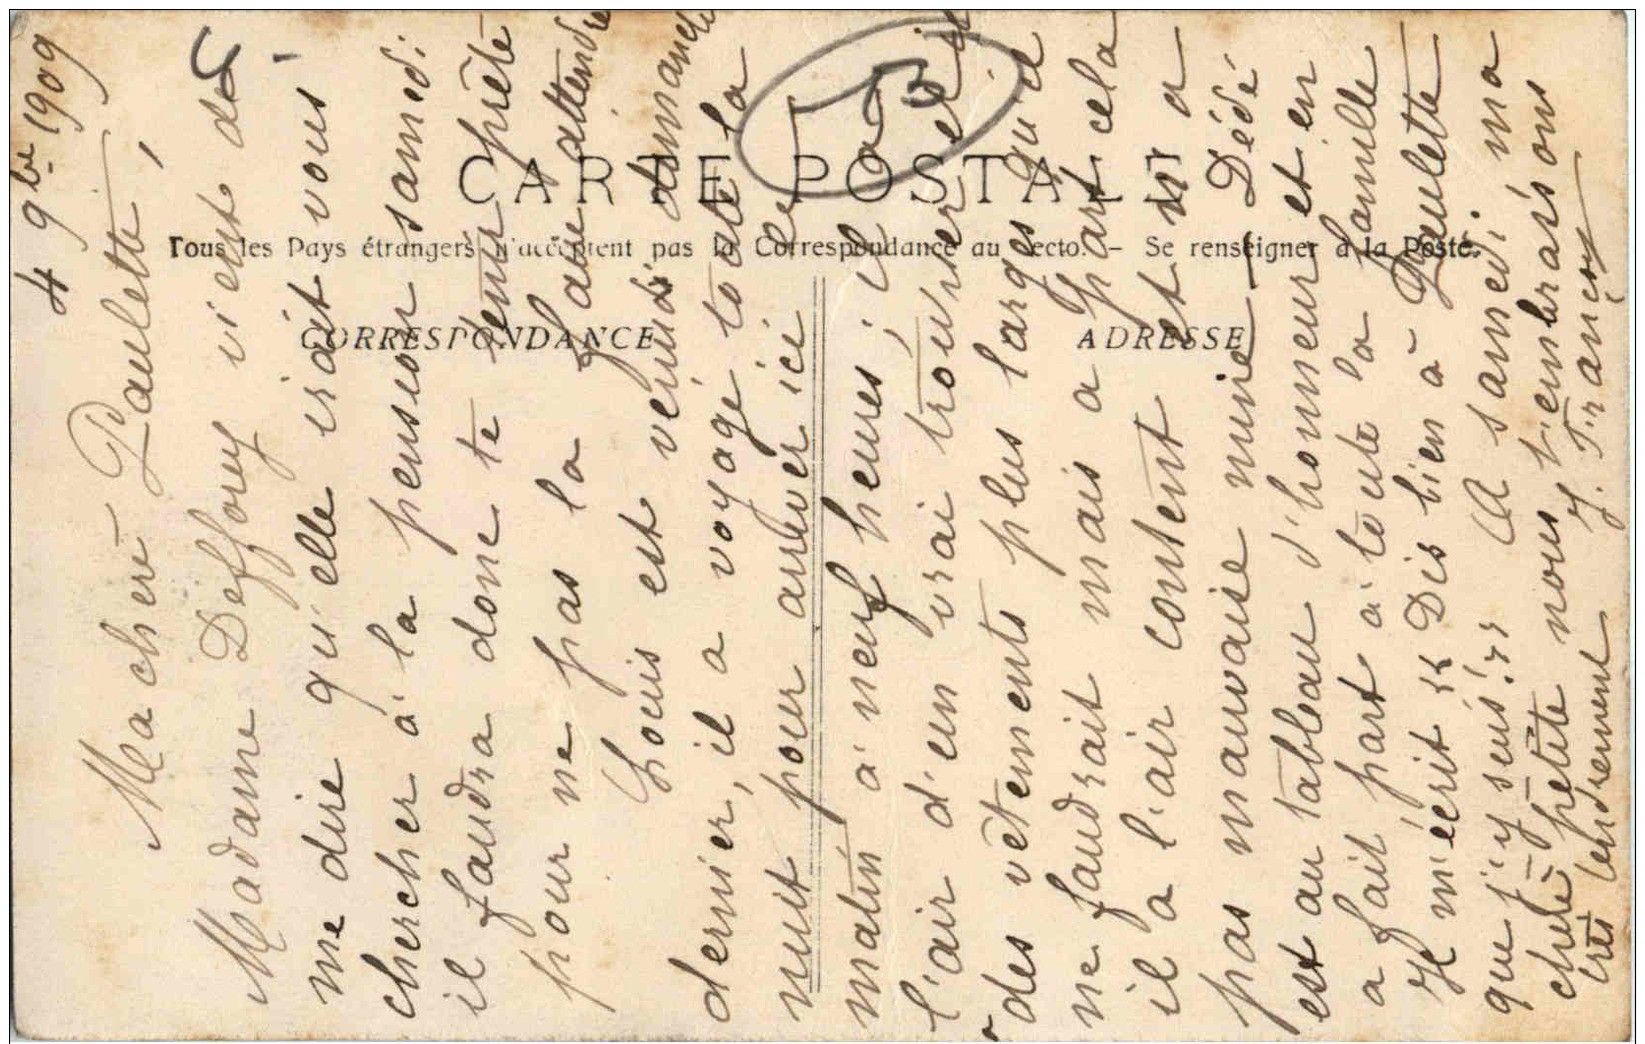 CARTE POSTALE
Tous les Pays étrangers n'acceptent pas la Correspondance au recto. — Se renseigner à la Poste.
CORRESPONDANCE
ADRESSE
4 9bre 1909
Ma chère Paulette,
Madame Deffory vient de
me dire qu'elle irait vous
chercher à la pension samedi
il faudra donc te tenir prête
pour ne pas la faire attendre
Louis est venu dimanche
dernier, il a voyagé toute la
nuit pour arriver ici le
matin à neuf heures; il a
l'air d'un vrai trouvier et il
des vêtements plus larges qu'il
ne faudrait mais à part cela
il a l'air content et n'a
pas mauvaise mine — Dédé
est au tableau d'honneur et en
a fait part à toute la famille
Il m'écrit "Dis bien à Paulette
que j'y suis!" A samedi ma
chère petite nous t'embrassons
très tendrement J. Françou